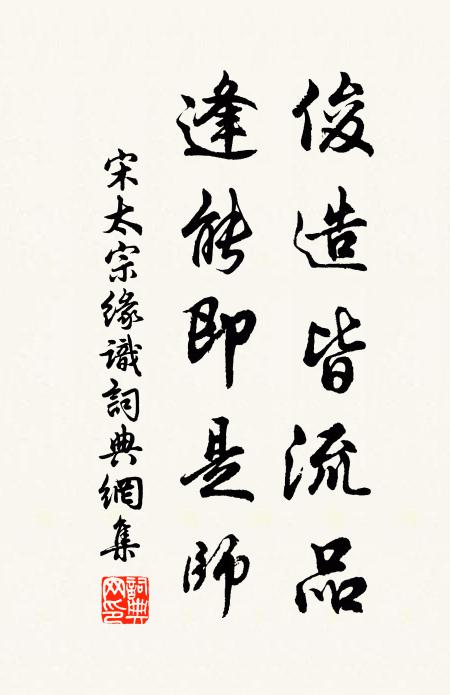 俊造皆流品
逢能即是師
宋太宗緣識詞典網集
詞典
网印